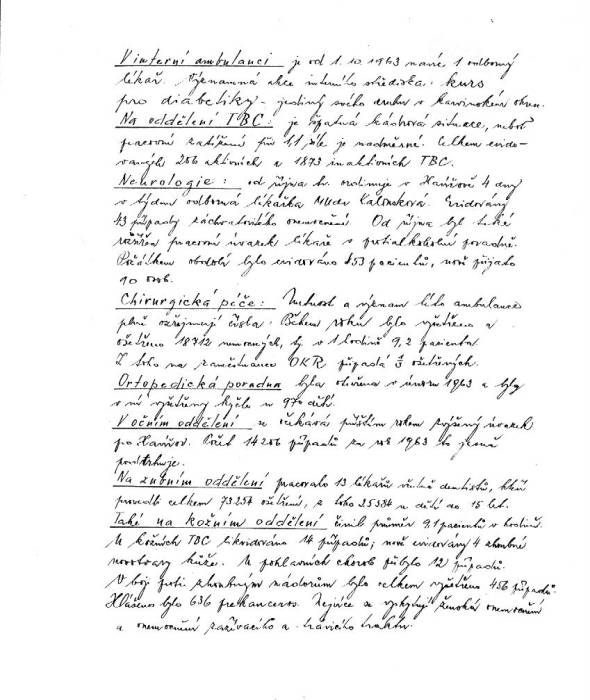 V interní ambulanci je od 1.10.1963 navíc 1 odborný
lékař. Významná akce interního střediska: kurs
pro diabetiky - jediný svého druhu v karvinském okrese.
Na oddělení TBC: je špatná kádrová situace, neboť
pracovní zatížení je nadměrné. Celkem evido-
vaných 206 aktivních a 1873 inaktivních TBC.
Neurologie: od října t.r. ordinuje v Havířově 4 dny
v týdnu odborná lékařka MUDr
43 případy záchvatovitého onemocnění. Od října byl také
pracovní úvazek lékaře v protialkoholní poradně.
Počátkem období bylo evidováno 153 pacientů, nově přijato
10 osob.
Chirurgická péče: Nutnost a význam této ambulance
plně ozřejmují čísla: Během roku bylo vyšetřeno a
ošetřeno 18712 nemocných, tj v 1 hodině 9,2 pacienta.
Z toho na zaměstnance OKR připadá ošetřených.
Ortopedická poradna byla otevřena v únoru 1963 a byly
v ní vyšetřeny kyčle u 970 dětí.
V očním oddělení se čekává příštím rokem zvýšený úvazek
po Havířov. Počet 14206 případů za rok 1963 to jasně
podtrhuje.
Na zubním oddělení pracovalo 13 lékařů včetně dentistů, kteří
provedli celkem 73257 ošetření, z toho 25384 u dětí do 15 let.
Také na kožním oddělení činil průměr 9,1 pacientů v hodině.
U kožních TBC likvidováno 14 případů; nově evidovány 4 zhoubné
novotvary kůže. U pohlavních chorob přibylo 12 případů.
V boji proti zhoubným nádorům bylo celkem vyšetřeno 456 případů.
Hlášeno bylo 636 prekanceros. Nejvíce se vyskytují ženská onemocnění
a onemocnění zažívacího a trávicího traktu.